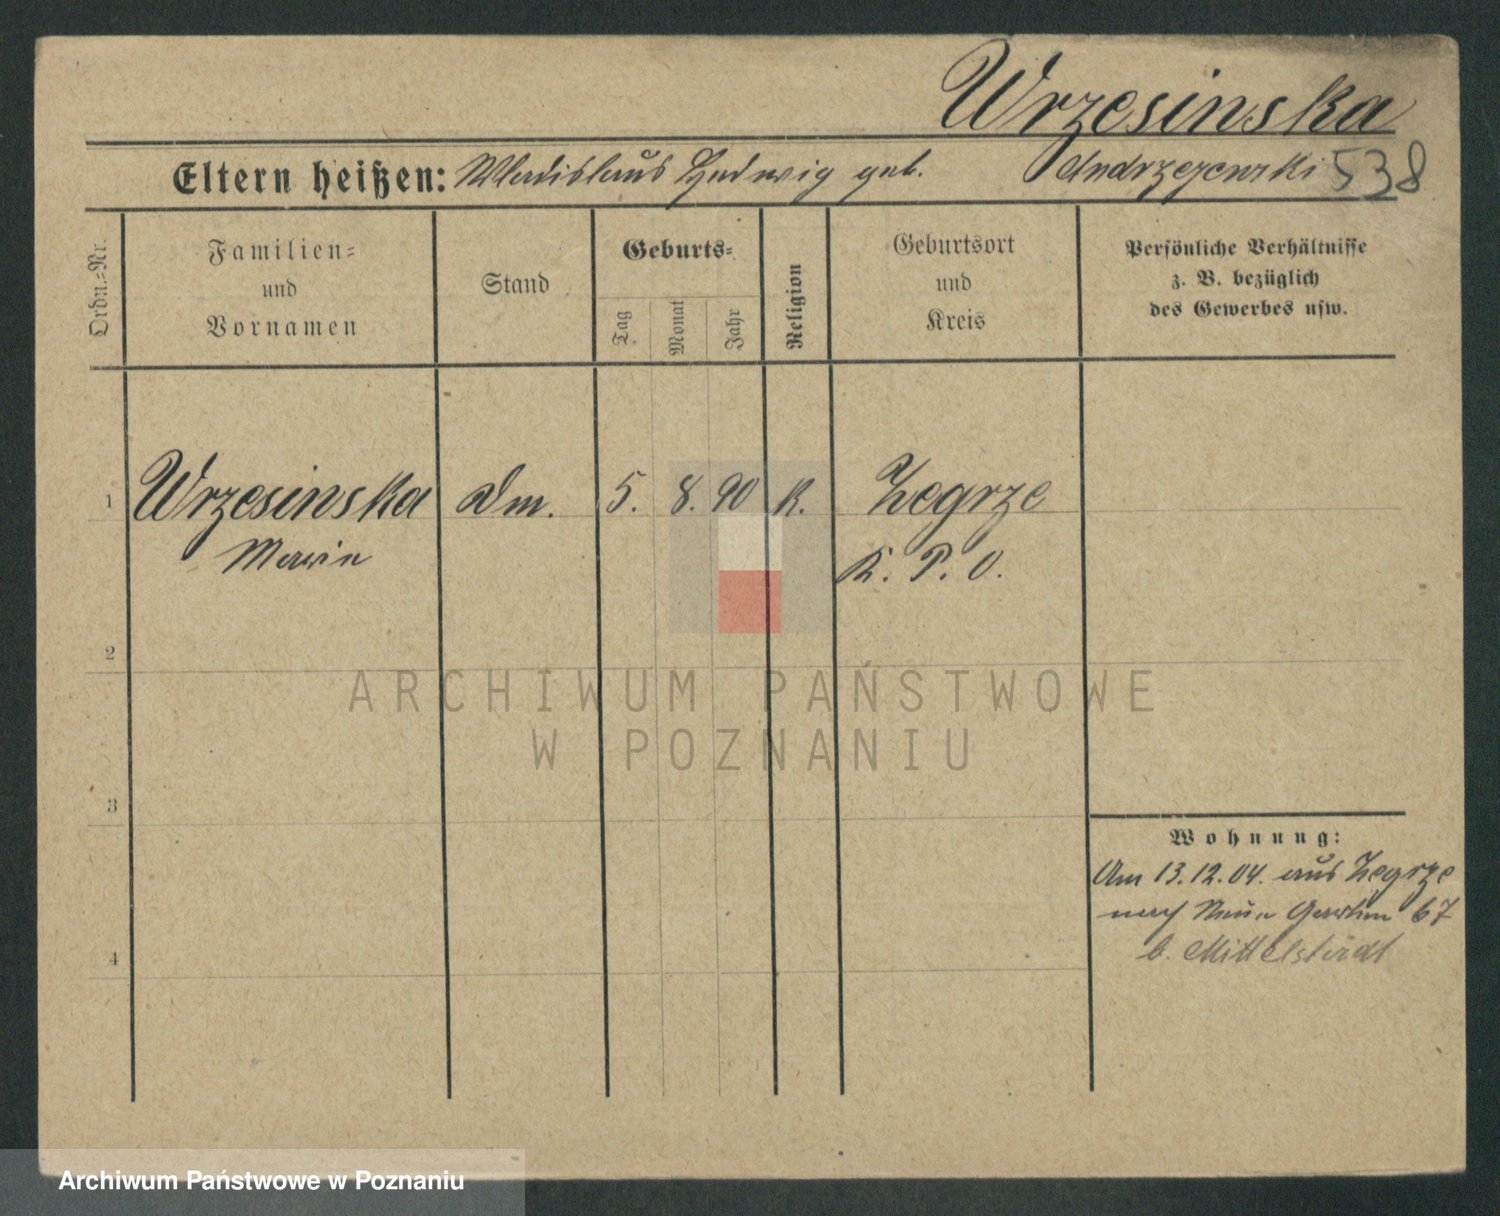 Wrzesinska
Eltern heißen: Wladislaus Hedwig geb. Andrzejewski 538
Ordn.=Nr.
Familien=
und
Vornamen
Stand
Geburts=
Tag
Monat
Jahr
Religion
Geburtsort
und
Kreis
Persönliche Verhältnisse
z. B. bezüglich
des Gewerbes usw.
1 Wrzesinska Dm. 5. 8. 90 K. Zegrze
Marie K. P. O.
2
3
4
Wohnung:
Am 13.12.04. aus Zegrze
nach Neue Garten 67
b. Mittelstädt
ARCHIWUM PAŃSTWOWE
W POZNANIU
Archiwum Państwowe w Poznaniu